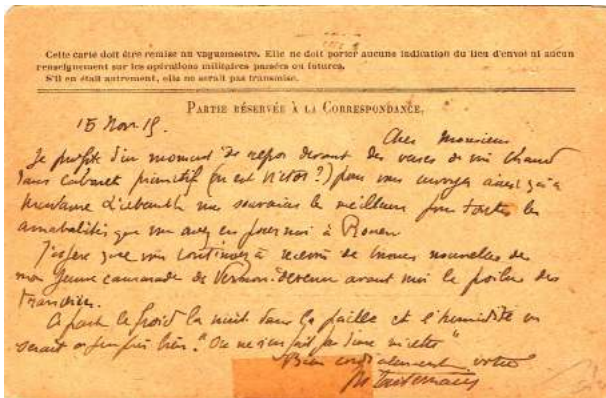 Cette carte doit être remise au vaguemestre. Elle ne doit porter aucune indication du lieu d'envoi ni aucun
renseignement sur les opérations militaires passées ou futures.
S'il en était autrement, elle ne serait pas transmise.
PARTIE RÉSERVÉE À LA CORRESPONDANCE.
15 Nov. 15.
Cher Monsieur
Je profite d'un moment de repos devant des verres de vin chaud
dans cabaret primitif (n est Victor ?) pour vous envoyer ainsi qu'à
Madame mes souvenirs les meilleurs pour toutes les
amabilités que vous avez eu pour moi à Rouen
J'espère que vous continuez à recevoir de bonnes nouvelles de
mon jeune camarade de Vernon devenu avant moi le poilu des
tranchées.
A part le froid la nuit dans la paille et l'humidité on
serait à peu près bien. "On ne s'en fait pas une miette"
Bien cordialement votre